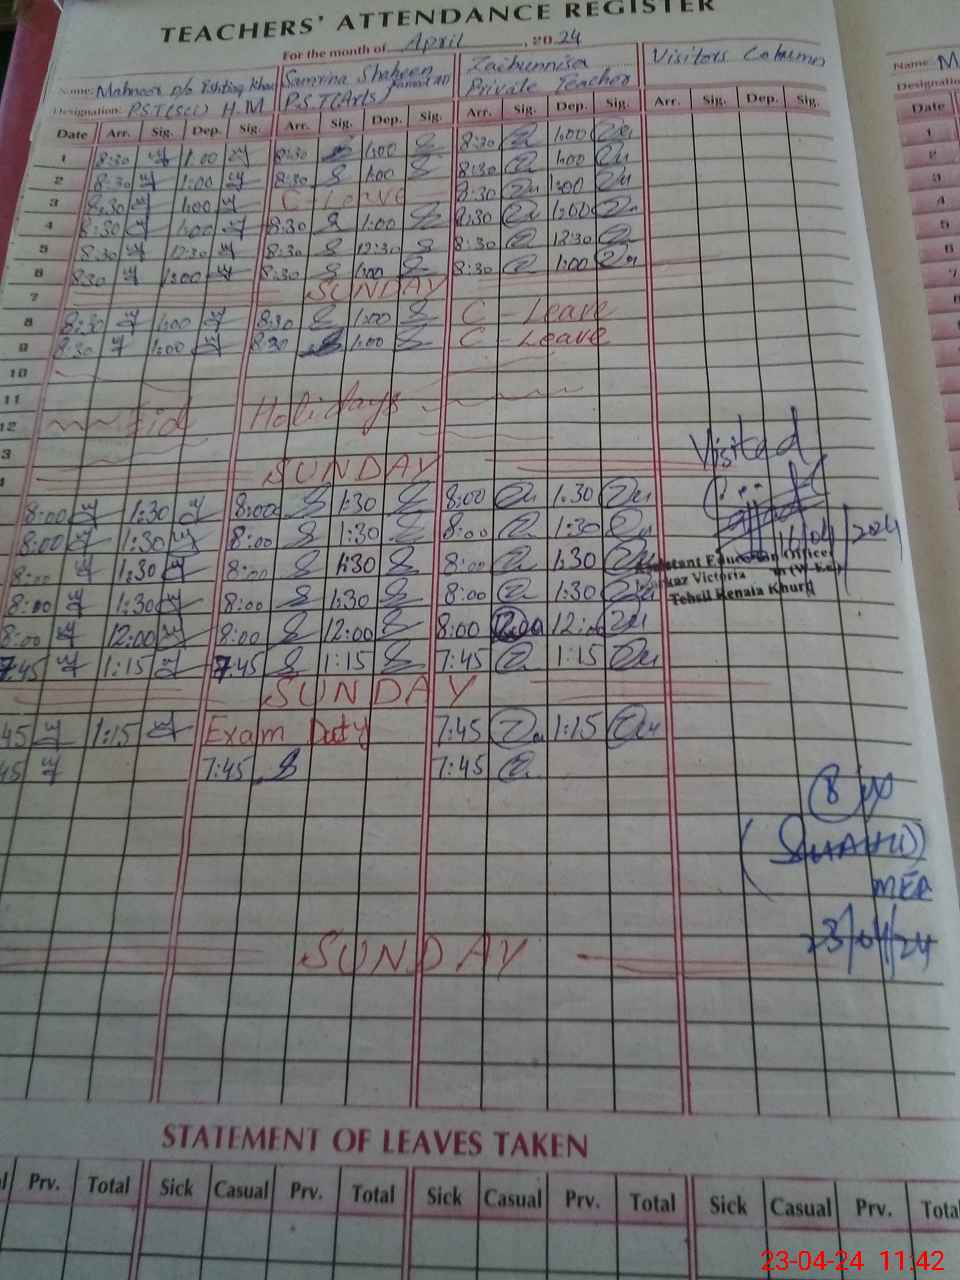 TEACHERS' ATTENDANCE REGISTER
For the month of April, 2024
Name: Mahnoor D/o Ishtiaq Khan Samrina Shaheen Zaibunnisa Visitors Column
Designation: PST(Sci) H.M P.S.T(Arts) Private Teacher
Date Arr. Sig. Dep. Sig. Arr. Sig. Dep. Sig. Arr. Sig. Dep. Sig. Arr. Sig. Dep. Sig.
1 8:30 1:00 8:30 1:00 8:30 1:00
2 8:30 1:00 8:30 1:00 8:30 1:00
3 8:30 1:00 C-Leave 8:30 1:00
4 8:30 1:00 8:30 1:00 8:30 1:00
5 8:30 12:30 8:30 12:30 8:30 12:30
6 8:30 1:00 8:30 1:00 8:30 1:00
7 SUNDAY
8 8:30 1:00 8:30 1:00 C - Leave
9 8:30 1:00 8:30 1:00 C - Leave
10
11 Eid Holidays
12
3
SUNDAY
8:00 1:30 8:00 1:30 8:00 1:30
8:00 1:30 8:00 1:30 8:00 1:30
8:00 1:30 8:00 1:30 8:00 1:30
8:00 1:30 8:00 1:30 8:00 1:30
8:00 12:00 8:00 12:00 8:00
7:45 1:15 7:45 1:15 7:45 1:15
SUNDAY
45 1:15 Exam Duty 7:45 1:15
45 7:45 7:45
SUNDAY
Visited
16/04/2024
Assistant Education Officer
Markaz Victoria (W-E.e)
Tehsil Renala Khurd
8
(SHAHID)
MEA
23/04/24
STATEMENT OF LEAVES TAKEN
Prv. Total Sick Casual Prv. Total Sick Casual Prv. Total Sick Casual Prv. Total
Name: M
Designation
Date
1
2
3
4
5
6
7
23-04-24 11:42